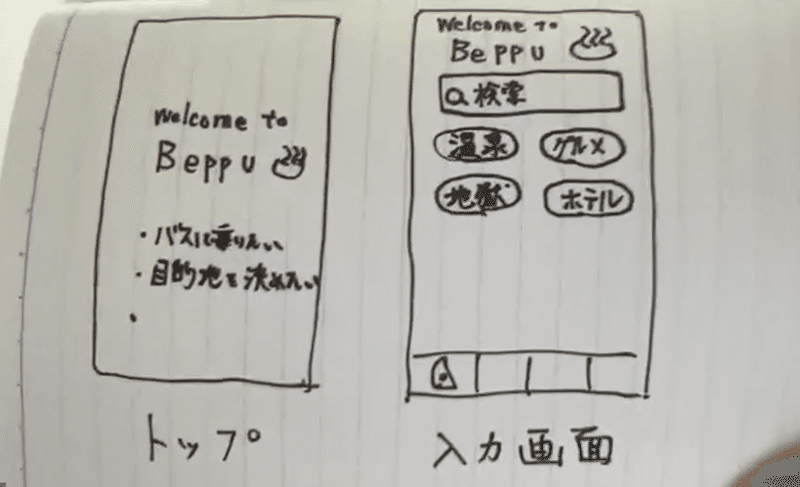 Welcome to
Beppu
・バスに乗りたい
・目的地を決めたい
・
トップ
Welcome to
Beppu
検索
温泉
グルメ
地獄
ホテル
入力画面